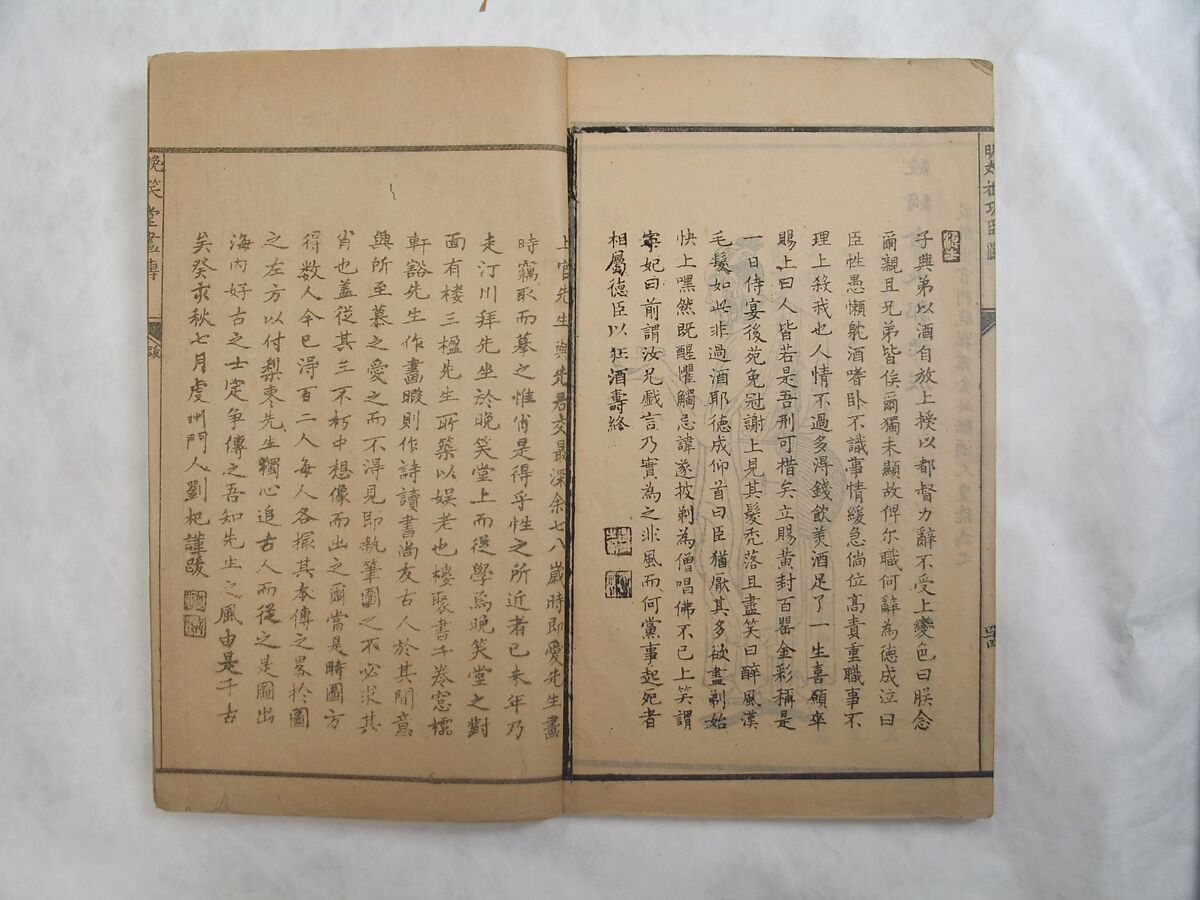 明太祖功臣圖
子興弟以酒自放上授以都督力辭不受上變色曰朕念
爾親且兄弟皆侯爾獨未顯故俾尔職何辭為德成泣曰
臣性愚懶躭酒嗜卧不識事情緩急倘位高責重職事不
理上殺我也人情不過多得錢飲美酒足了一生喜願卒
賜上曰人皆若是吾刑可措矣立賜黃封百罌金彩稱是
一日侍宴後苑免冠謝上見其髮禿落且盡笑曰醉風漢
毛髮如此非過酒耶德成仰首曰臣猶厭其多欲盡剃始
快上嘿然既醒懼觸忌諱遂披剃為僧唱佛不已上笑謂
寧妃曰前謂汝兄戲言乃實為之非風而何黨事起死者
相屬德臣以狂酒壽終
上官先生與先君交最深余七八歲時即愛先生畫
時竊取而摹之惟肖是得乎性之所近者已未年乃
走汀川拜先生於晚笑堂上而從學焉晚笑堂之對
面有楼三楹先生所築以娱老也樓聚書千卷窓櫺
軒豁先生作畫暇則作詩讀書尚友古人於其間意
興所至慕之愛之而不得見即執筆圖之不必求其
肖也盖從其三不朽中想像而出之爾當是時圖方
得数人今已得百二人每人各撮其本傳之畧於圖
之左方以付梨枣先生獨心追古人而從之是圖出
海内好古之士定争傳之吾知先生之風由是千古
矣癸亥秋七月虔州門人劉杞謹跋
晚笑堂畫傳
跋